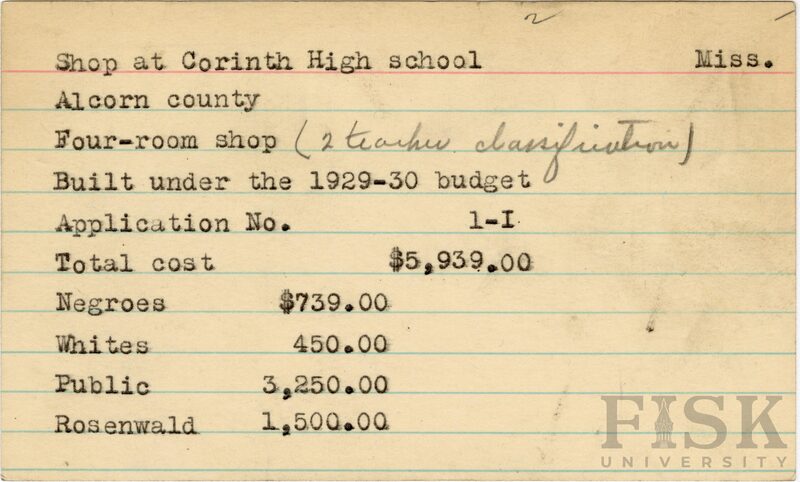 2
Shop at Corinth High school Miss.
Alcorn county
Four-room shop (2 teacher classification)
Built under the 1929-30 budget
Application No. 1-I
Total cost $5,939.00
Negroes $739.00
Whites 450.00
Public 3,250.00
Rosenwald 1,500.00
FISK
UNIVERSITY